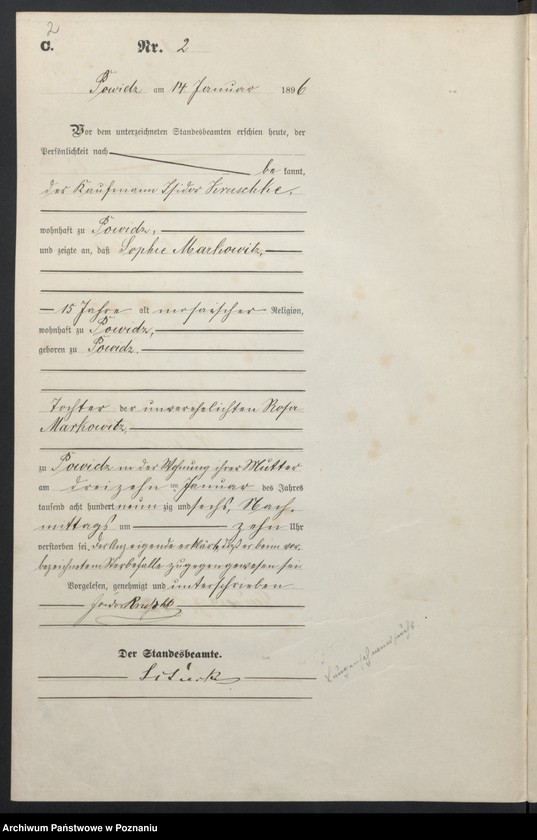 2
C. Nr. 2
Powidz am 14 Januar 1896
Vor dem unterzeichneten Standesbeamten erschien heute, der
Persönlichkeit nach
be kannt,
der Kaufmann Isidor
wohnhaft zu Powidz,
und zeigte an, daß Sophie Markowitz,
15 Jahre alt mosaischer Religion,
wohnhaft zu Powidz,
geboren zu Powidz.
Tochter der unverehelichten Rosa
Markowitz,
zu Powidz in der Wohnung ihrer Mutter
am dreizehn ten Januar des Jahres
tausend acht hundert neun zig und sechs, Nach-
mittags um zehn Uhr
verstorben sei. Der Anzeigende erklärt, daß er beim vor-
bezeichneten Sterbefalle zugegen gewesen sei
Vorgelesen, genehmigt und unterschrieben
Isidor
Der Standesbeamte.
Lungenschwindsucht
Archiwum Państwowe w Poznaniu